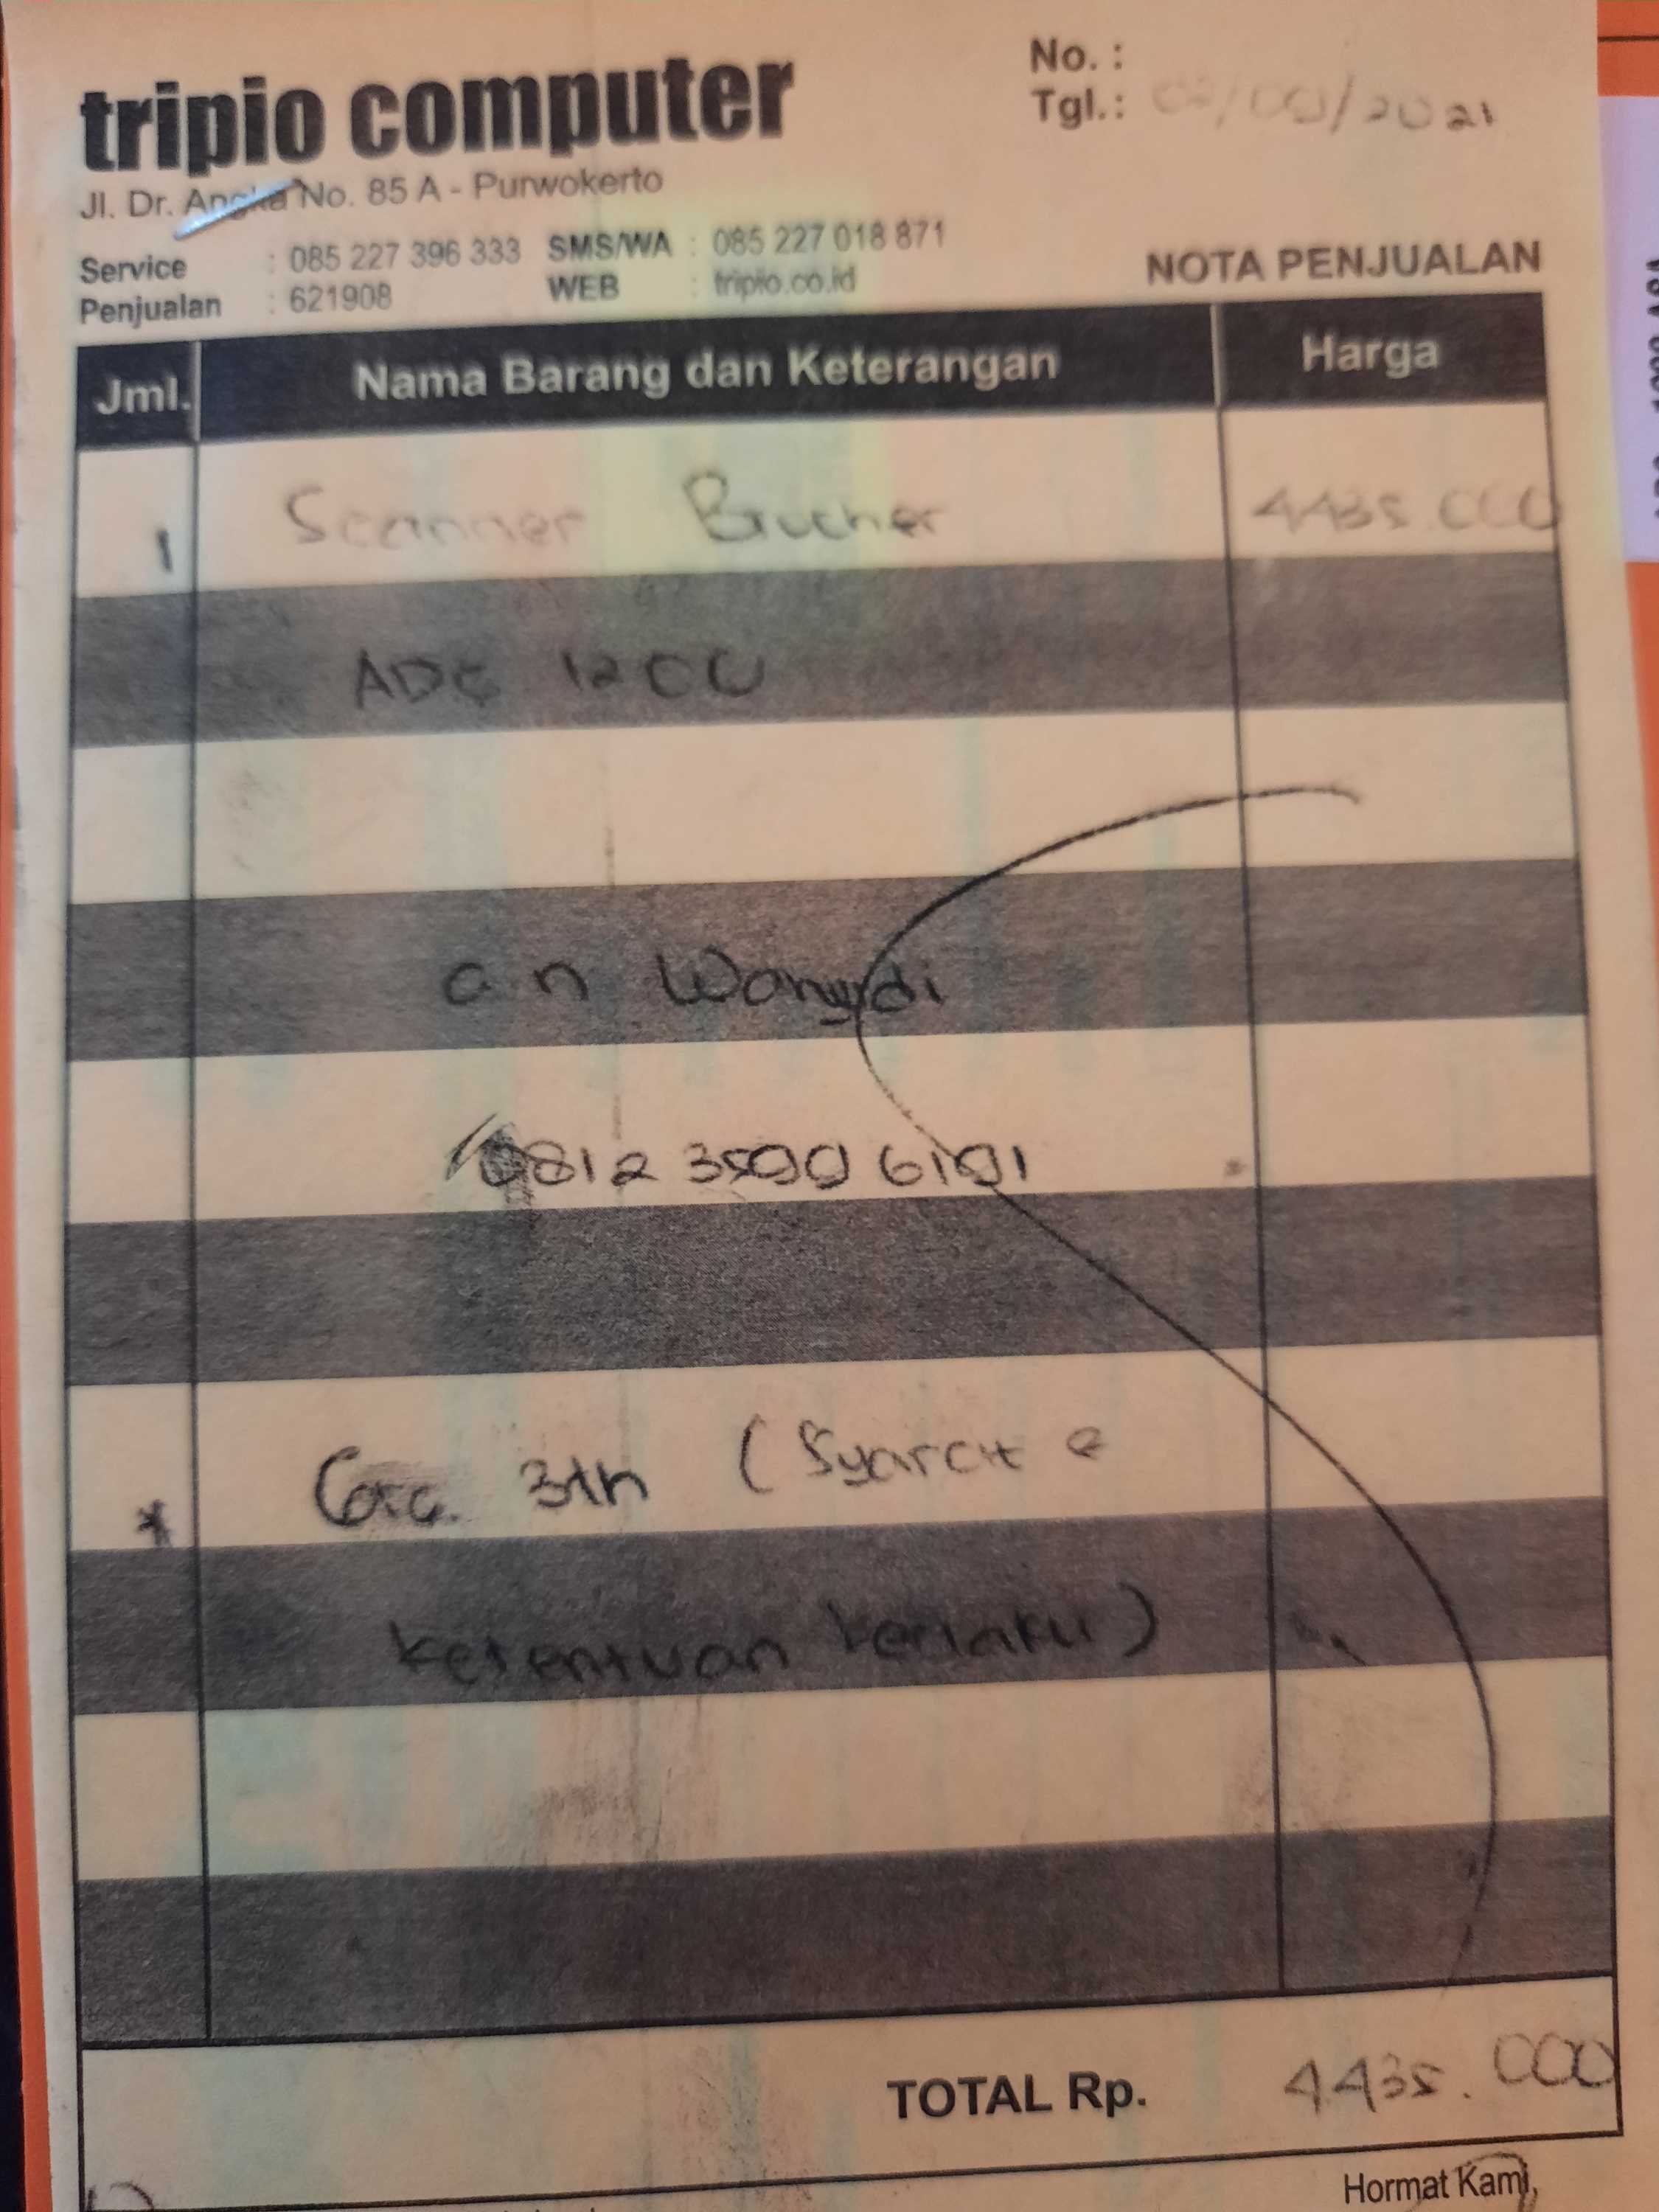 tripio computer
No. :
Tgl.: /2021
Jl. Dr. Angka No. 85 A - Purwokerto
Service : 085 227 396 333 SMS/WA : 085 227 018 871
Penjualan : 621908 WEB : tripio.co.id
NOTA PENJUALAN
Jml. Nama Barang dan Keterangan Harga
1 Scanner Brother 4435.000
ADS 1200
a n
0812 6191
* Gar. 3th ( Syarat &
ketentuan berlaku )
TOTAL Rp. 4435.000
Hormat Kami,